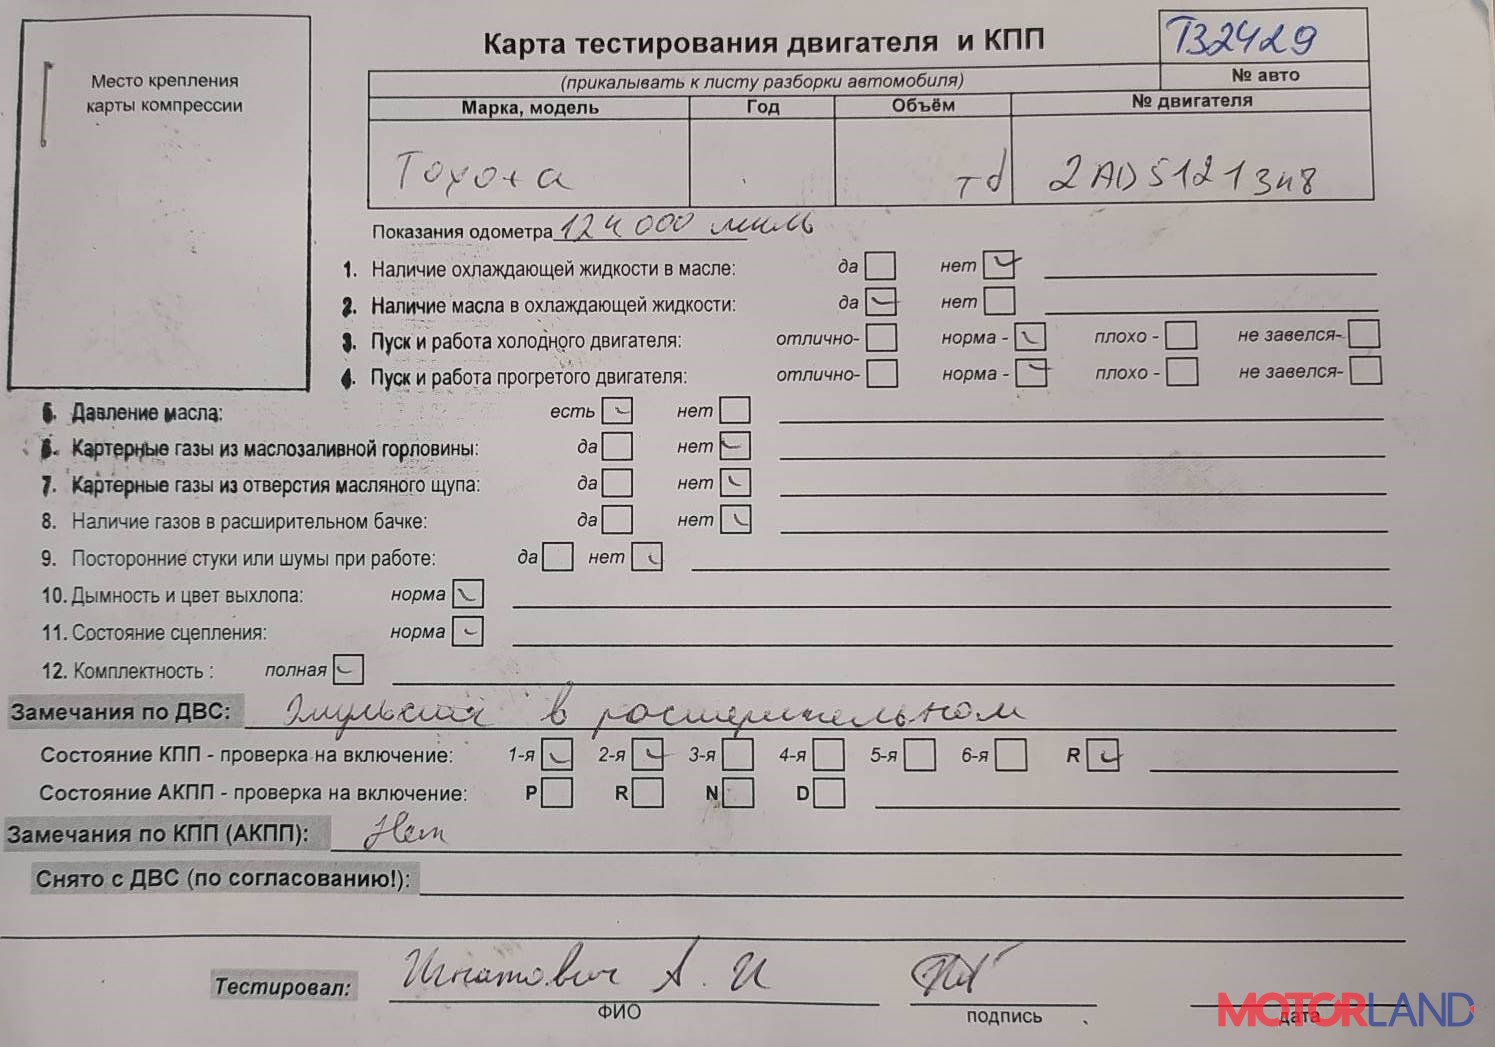 Место крепления
карты компрессии
Карта тестирования двигателя и КПП
ТЗ2429
(прикалывать к листу разборки автомобиля)
№ авто
Марка, модель Год Объём № двигателя
Тойота td 2AD5121348
Показания одометра 124000 миль
1. Наличие охлаждающей жидкости в масле: да нет
2. Наличие масла в охлаждающей жидкости: да нет
3. Пуск и работа холодного двигателя: отлично- норма - плохо - не завелся-
4. Пуск и работа прогретого двигателя: отлично- норма - плохо - не завелся-
5. Давление масла: есть нет
6. Картерные газы из маслозаливной горловины: да нет
7. Картерные газы из отверстия масляного щупа: да нет
8. Наличие газов в расширительном бачке: да нет
9. Посторонние стуки или шумы при работе: да нет
10. Дымность и цвет выхлопа: норма
11. Состояние сцепления: норма
12. Комплектность : полная
Замечания по ДВС: Эмульсия в расширительном
Состояние КПП - проверка на включение: 1-я 2-я 3-я 4-я 5-я 6-я R
Состояние АКПП - проверка на включение: P R N D
Замечания по КПП (АКПП): Нет
Снято с ДВС (по согласованию!):
Тестировал: Игнатович А. И
ФИО подпись дата
MOTORLAND